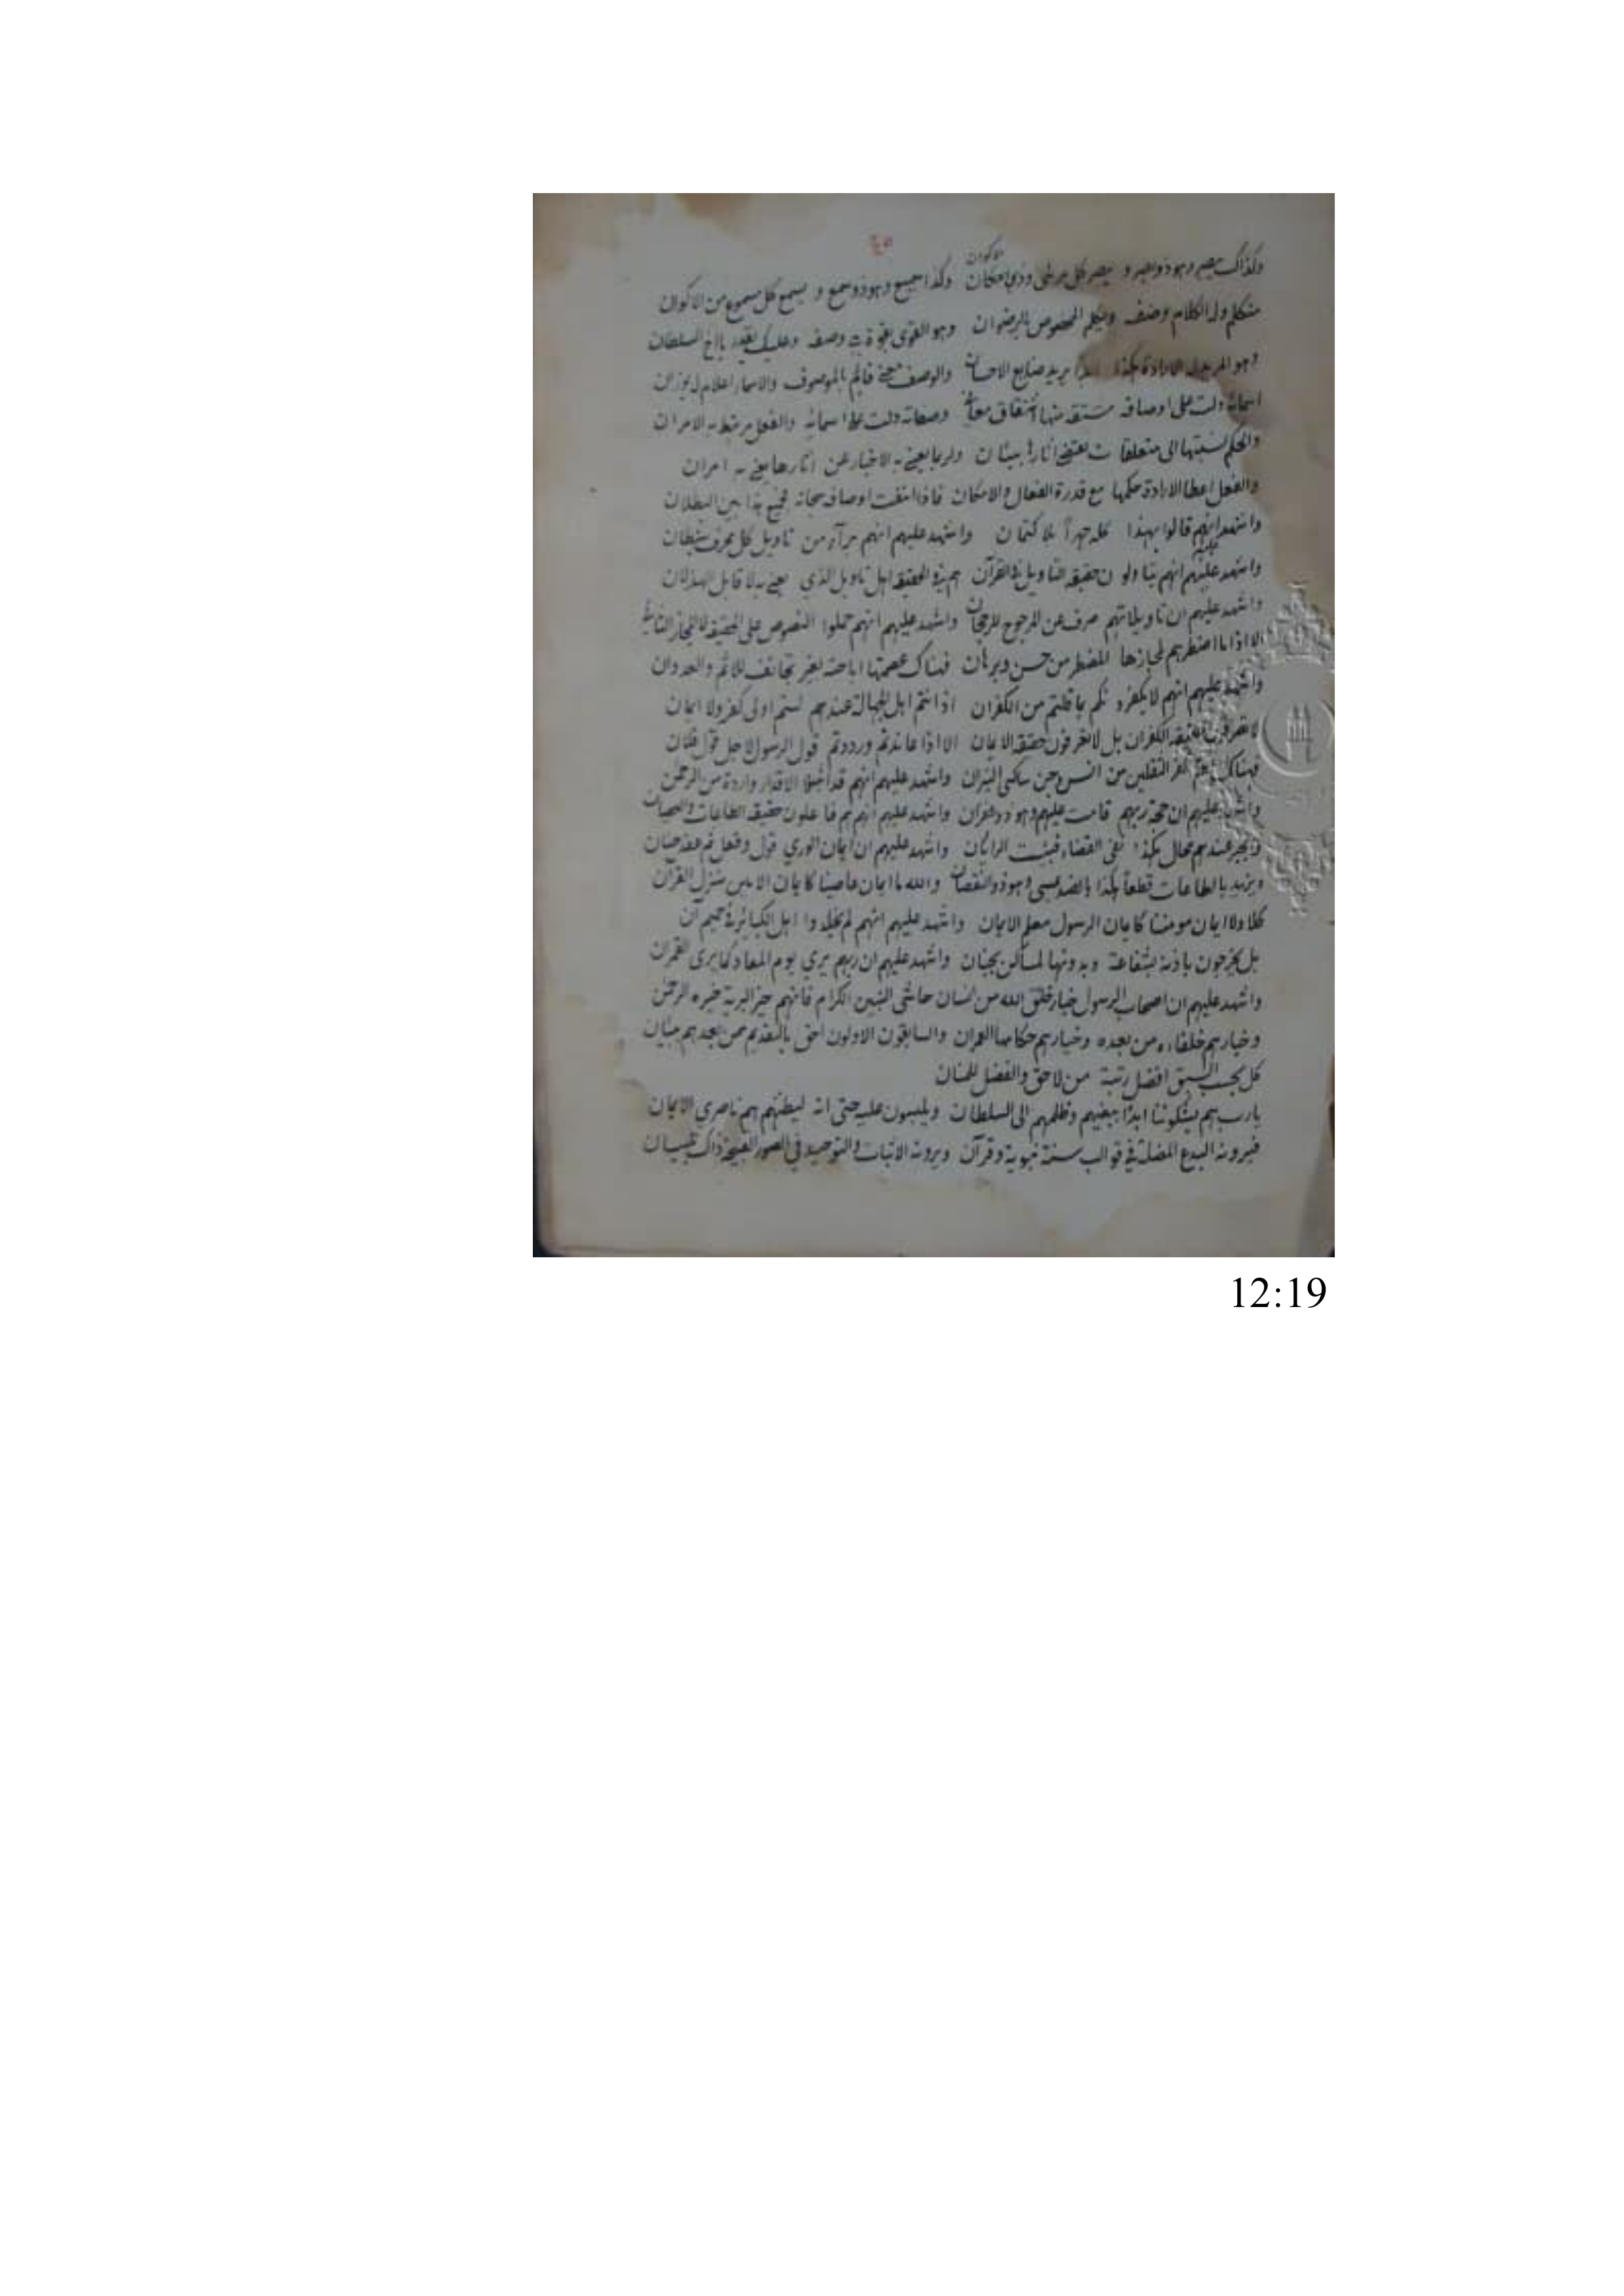 وكذاك بصير وهو ذو بصر و يبصر كل مرئي وذي امكان الاكوان وكذا سميع وهو ذو سمع و يسمع كل مسموع من الاكوان
متكلم وله الكلام وصف ويكلم المخصوص بالرضوان وهو القوي بقوة وصفه يقدر السلطان
وهو المريد له الارادة هكذا ابدا يريد صنايع الاحسان والوصف معنى قائم بالموصوف والاسماء اعلام له بوزان
اسمائه دلت على اوصافه مشتقة منها اشتقاق معان وصفاته دلت على اسمائه والفعل مرتبط به الامران
والحكم نسبتها الى متعلقات تقتضي اثارها ببيان ولربما يعني به الاخبار عن اثارها يعني به امران
والفعل اعطا الارادة حكمها مع قدرة الفعال والامكان فاذا انتفت اوصافه سبحانه فجميع هذا بين البطلان
واشهد انهم قالوا بهذا كله جهرا بلا كتمان واشهد عليهم انهم برآء من تاويل كل محرف شيطان
واشهد عليهم انهم يتاولون حقيقة التاويل في القرآن هم في الحقيقة اهل تاويل الذي يعني به لا قابل الهذيان
واشهد عليهم ان تاويلاتهم صرف عن المرجوح للرجحان واشهد عليهم انهم حملوا النصوص على الحقيقة لا المجاز الثاني
الا اذا ما اضطرهم لمجازها المضطر من حس وبرهان فهناك عصمتها اباحته بغير تجانف للاثم والعدوان
واشهد عليهم انهم لا يكفرونكم بما قلتم من الكفران اذ انتم اهل الجهالة عندهم لستم اولى كفر ولا ايمان
لا تعرفون حقيقة الكفران بل لا تعرفون حقيقة الايمان الا اذا عاندتم ورددتم قول الرسول لاجل قول فلان
فهناك انتم اكفر الثقلين من انس وجن ساكني النيران واشهد عليهم انهم قد اثبتوا الاقدار واردة من الرحمن
واشهد عليهم ان حجة ربهم قامت عليهم وهو ذو غفران واشهد عليهم انهم هم فاعلون حقيقة الطاعات والعصيان
والجبر عندهم محال هكذا نفي القضاء فبئست الرايان واشهد عليهم ان ايمان الوري قول وفعل ثم عقد جنان
ويزيد بالطاعات قطعا هكذا بالضد يمسي وهو ذو النقصان والله ما ايمان عاصينا كايمان الامين منزل القرآن
كلا ولا ايمان مومننا كايمان الرسول معلم الايمان واشهد عليهم انهم لم يخلدوا اهل الكبائر في حميم آن
بل يخرجون باذنه بشفاعة وبدونها لمساكن بجنان واشهد عليهم ان ربهم يري يوم المعاد كما يرى القمران
واشهد عليهم ان اصحاب الرسول خيار خلق الله من انسان حاشى النبيين الكرام فانهم خير البرية خيره الرحمن
وخيارهم خلفاءه من بعده وخيارهم حكاما العمران والسابقون الاولون احق بالتقديم ممن بعدهم ببيان
كل بحسب السبق افضل رتبة من لاحق والفضل للمنان
يا رب هم يشكوننا ابدا ببغيهم وظلمهم الى السلطان ويلبسون عليه حتى انه ليظنهم هم ناصري الايمان
فيرونه البدع المضلة في قوالب سنة نبوية وقرآن ويرونه الاثبات والتوحيد في الصور القبيحة ذاك تلبيسان
12:19